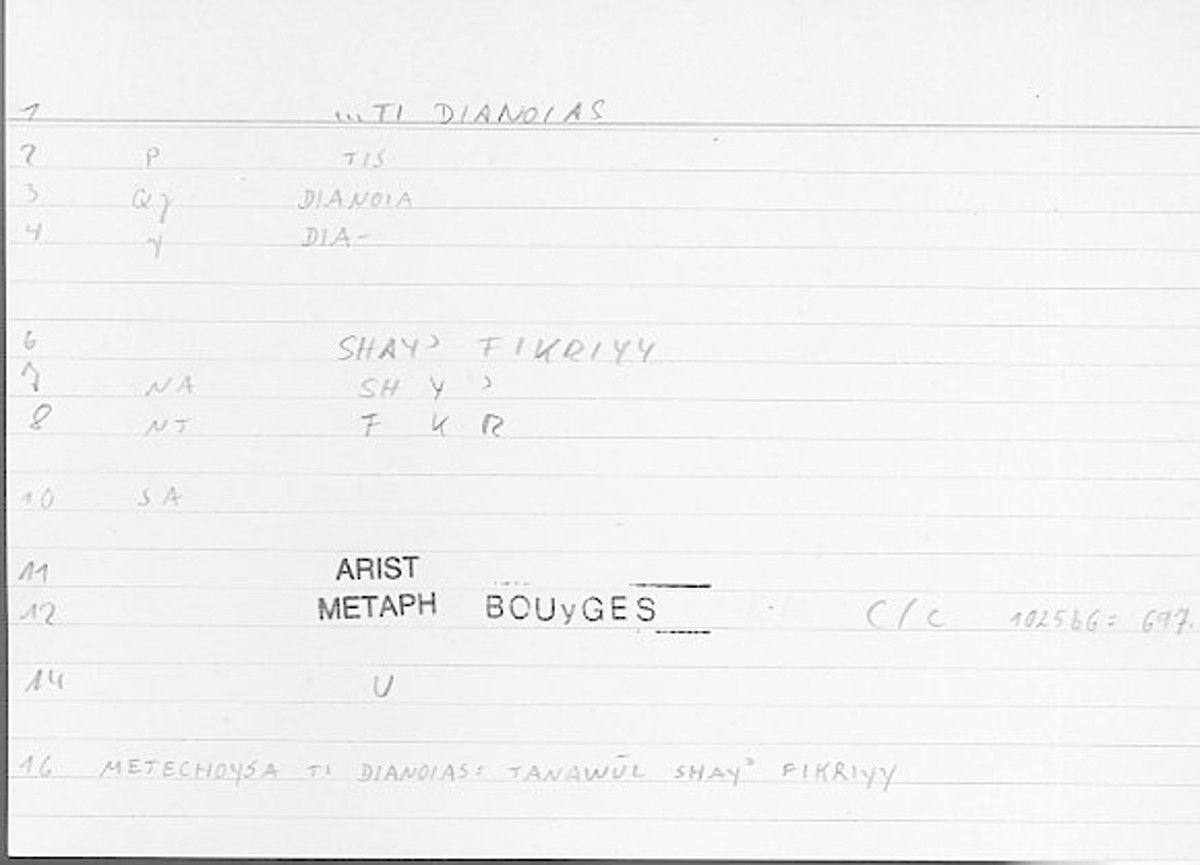 1 ...TI DIANOIAS
2 P TIS
3 Qγ DIANOIA
4 γ DIA-
6 SHAYʾ FIKRIYY
7 NA SH Y ʾ
8 NT F K R
10 SA
11 ARIST
12 METAPH BOUyGES C/c 1025b6= 697.
14 U
16 METECHOYSA TI DIANOIAS: TANAWŪL SHAYʾ FIKRIYY